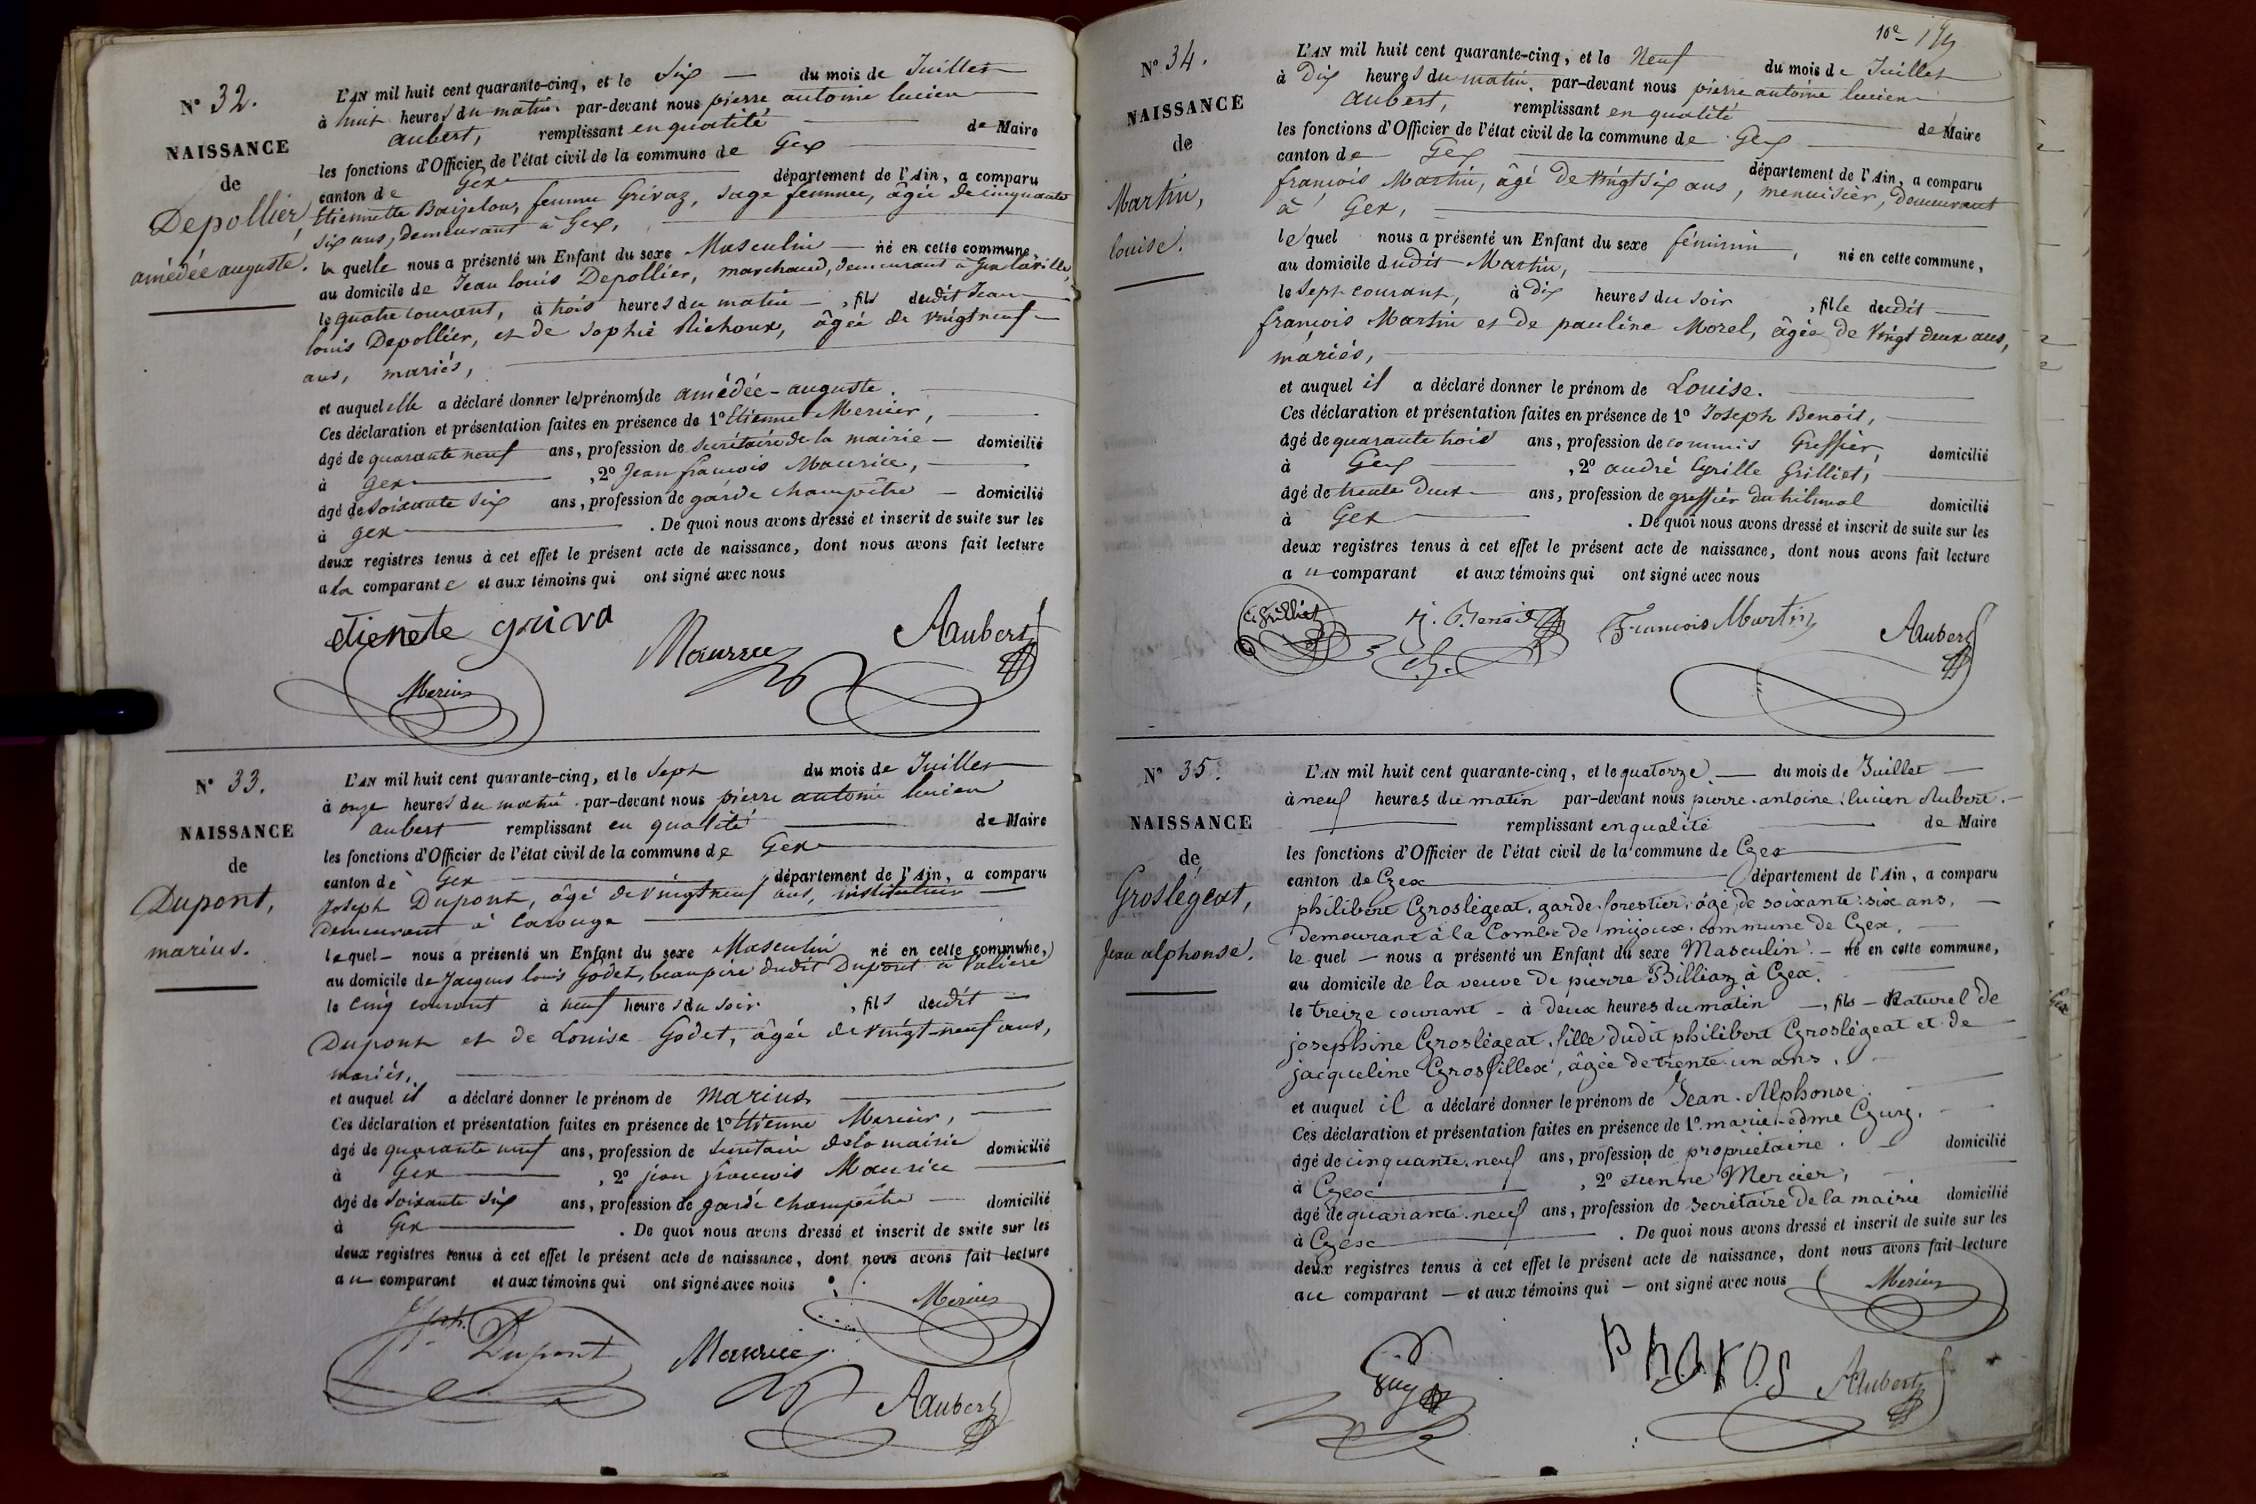 N° 32.
NAISSANCE
de
Depollier,
amédée auguste.
L'AN mil huit cent quarante-cinq, et le Six du mois de Juillet
à huit heures du matin. par-devant nous pierre antoine lucien
aubert, remplissant en qualité de Maire
les fonctions d'Officier de l'état civil de la commune de Gex
canton de Gex département de l'Ain, a comparu
Etiennette Baizelon, femme Grivaz, sage femme, âgée de cinquante
six ans, demeurant à Gex,
la quelle nous a présenté un Enfant du sexe Masculin né en cette commune,
au domicile de Jean louis Depollier, marchand, demeurant à Gex la ville,
le quatre courant, à trois heures du matin, fils dudit Jean
louis Depollier, et de Sophie Richoux, âgée de vingt neuf
ans, mariés,
et auquel elle a déclaré donner les prénoms de amédée-auguste.
Ces déclaration et présentation faites en présence de 1° Etienne Mercier,
âgé de quarante neuf ans, profession de secrétaire de la mairie domicilié
à Gex, 2° Jean françois Maurice,
âgé de soixante six ans, profession de garde champêtre domicilié
à gex. De quoi nous avons dressé et inscrit de suite sur les
deux registres tenus à cet effet le présent acte de naissance, dont nous avons fait lecture
a la comparante et aux témoins qui ont signé avec nous
etienete griva
Maurice
Aubert
Mercier
N° 33.
NAISSANCE
de
Dupont,
marius.
L'AN mil huit cent quarante-cinq, et le Sept du mois de Juillet
à onze heures du matin. par-devant nous pierre antoine lucien
aubert remplissant en qualité de Maire
les fonctions d'Officier de l'état civil de la commune de Gex
canton de Gex département de l'Ain, a comparu
Joseph Dupont, âgé de vingt neuf ans, instituteur
demeurant à Carouge
lequel nous a présenté un Enfant du sexe Masculin né en cette commune,
au domicile de Jacques louis Godet, beaupère dudit Dupont à
le cinq courant à neuf heures du soir, fils dudit
Dupont et de Louise Godet, âgée de vingt-neuf ans,
mariés,
et auquel il a déclaré donner le prénom de Marius
Ces déclaration et présentation faites en présence de 1° Etienne Mercier,
âgé de quarante neuf ans, profession de secrétaire de la mairie domicilié
à Gex, 2° jean françois Maurice
âgé de soixante six ans, profession de garde champêtre domicilié
à Gex. De quoi nous avons dressé et inscrit de suite sur les
deux registres tenus à cet effet le présent acte de naissance, dont nous avons fait lecture
au comparant et aux témoins qui ont signé avec nous
Mercier
Jph. Dupont
Maurice
Aubert
10e
N° 34.
NAISSANCE
de
Martin,
louise.
L'AN mil huit cent quarante-cinq, et le Neuf du mois de Juillet
à Dix heures du matin, par-devant nous pierre antoine lucien
aubert, remplissant en qualité de Maire
les fonctions d'Officier de l'état civil de la commune de Gex
canton de Gex département de l'Ain, a comparu
françois Martin, âgé de vingt six ans, menuisier, demeurant
à Gex,
lequel nous a présenté un Enfant du sexe féminin, né en cette commune,
au domicile dudit Martin,
le sept courant, à dix heures du soir, fille dudit
françois Martin et de pauline Morel, âgée de vingt deux ans,
mariés,
et auquel il a déclaré donner le prénom de Louise.
Ces déclaration et présentation faites en présence de 1° Joseph Benoit,
âgé de quarante trois ans, profession de commis Greffier, domicilié
à Gex, 2° andré Cyrille Grilliet,
âgé de trente deux ans, profession de greffier du tribunal domicilié
à Gex. De quoi nous avons dressé et inscrit de suite sur les
deux registres tenus à cet effet le présent acte de naissance, dont nous avons fait lecture
au comparant et aux témoins qui ont signé avec nous
C. Grilliet
J. Benoit
François Martin
Aubert
N° 35.
NAISSANCE
de
Groslégeat,
Jean alphonse.
L'AN mil huit cent quarante-cinq, et le quatorze du mois de Juillet
à neuf heures du matin par-devant nous pierre antoine lucien Aubert.
remplissant en qualité de Maire
les fonctions d'Officier de l'état civil de la commune de Gex
canton de Gex département de l'Ain, a comparu
philibert Groslégeat, garde forestier, âgé de soixante six ans,
demeurant à la Combe de mijoux commune de Gex,
le quel nous a présenté un Enfant du sexe Masculin né en cette commune,
au domicile de la veuve de pierre Billiaz à Gex.
le treize courant à deux heures du matin, fils Naturel de
josephine Groslégeat fille dudit philibert Groslégeat et de
jacqueline Grosfillex, âgée de trente un ans.
et auquel il a déclaré donner le prénom de Jean-Alphonse.
Ces déclaration et présentation faites en présence de 1° marie-edme Guy,
âgé de cinquante neuf ans, profession de propriétaire domicilié
à Gex, 2° etienne Mercier,
âgé de quarante-neuf ans, profession de secrétaire de la mairie domicilié
à Gex. De quoi nous avons dressé et inscrit de suite sur les
deux registres tenus à cet effet le présent acte de naissance, dont nous avons fait lecture
au comparant et aux témoins qui ont signé avec nous
Mercier
Guy
Aubert